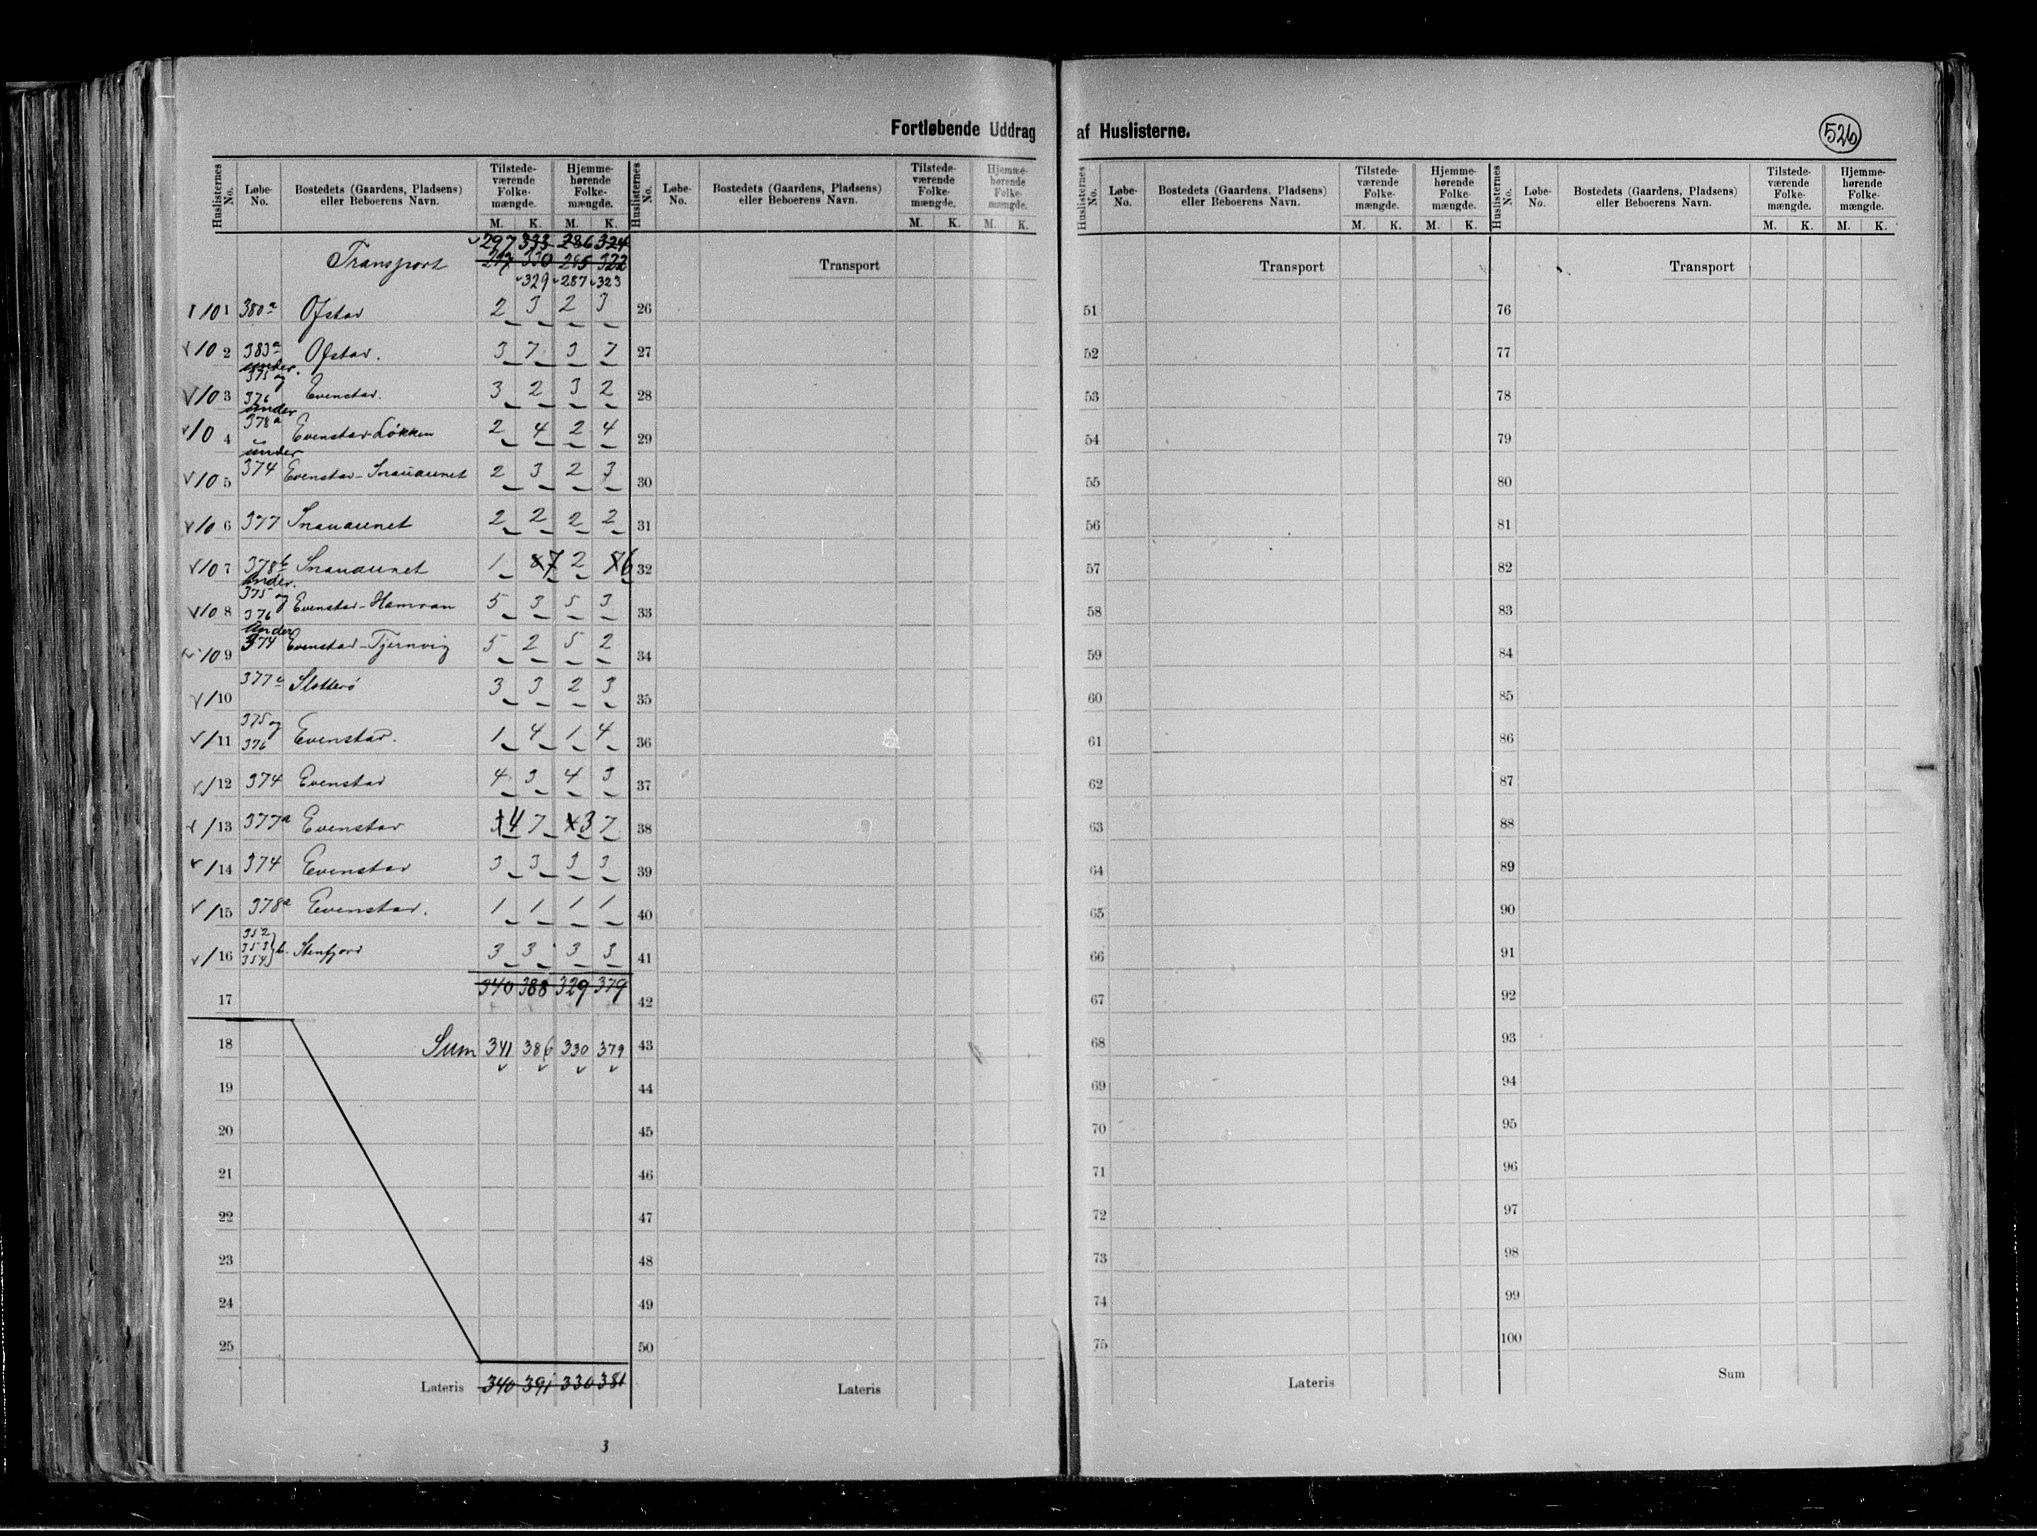 Fortløbende Uddrag af Huslisterne.
526
Huslisternes No. Løbe-No. Bostedets (Gaardens, Pladsens) eller Beboerens Navn. Tilstedeværende Folkemængde. M. K. Hjemmehørende Folkemængde. M. K.
297 333 286 324
Transport 297 330 285 322
329 287 323
10 1 380a Ofstad 2 3 2 3
10 2 383a Ofstad. 3 7 3 7
10 3 under 375 og 376 Evenstad. 3 2 3 2
10 4 under 378a Evenstad Løkken 2 4 2 4
10 5 under 374 Evenstad-Snauaunet 2 3 2 3
10 6 377 Snauaunet 2 2 2 2
10 7 378b Snauaunet 1 8 7 2 8 6
10 8 Under 375 og 376 Evenstad-Hamran 5 3 5 3
10 9 Under 374 Evenstad-Tjernvig 5 2 5 2
10 377 Slotterø 3 3 2 3
11 375 og 376 Evenstad. 1 4 1 4
12 374 Evenstad 4 3 4 3
13 377a Evenstad 3 4 7 4 3 7
14 374 Evenstad 3 3 3 3
15 378a Evenstad. 1 1 1 1
16 352 353 354 b. Stenfjord 3 3 3 3
340 388 329 379
17
18 Sum 341 386 330 379
19
20
21
22
23
24
25
Lateris 340 391 330 381
3
Huslisternes No. Løbe-No. Bostedets (Gaardens, Pladsens) eller Beboerens Navn. Tilstedeværende Folkemængde. M. K. Hjemmehørende Folkemængde. M. K.
Transport
26
27
28
29
30
31
32
33
34
35
36
37
38
39
40
41
42
43
44
45
46
47
48
49
50
Lateris
Huslisternes No. Løbe-No. Bostedets (Gaardens, Pladsens) eller Beboerens Navn. Tilstedeværende Folkemængde. M. K. Hjemmehørende Folkemængde. M. K.
Transport
51
52
53
54
55
56
57
58
59
60
61
62
63
64
65
66
67
68
69
70
71
72
73
74
75
Lateris
Huslisternes No. Løbe-No. Bostedets (Gaardens, Pladsens) eller Beboerens Navn. Tilstedeværende Folkemængde. M. K. Hjemmehørende Folkemængde. M. K.
Transport
76
77
78
79
80
81
82
83
84
85
86
87
88
89
90
91
92
93
94
95
96
97
98
99
100
Sum